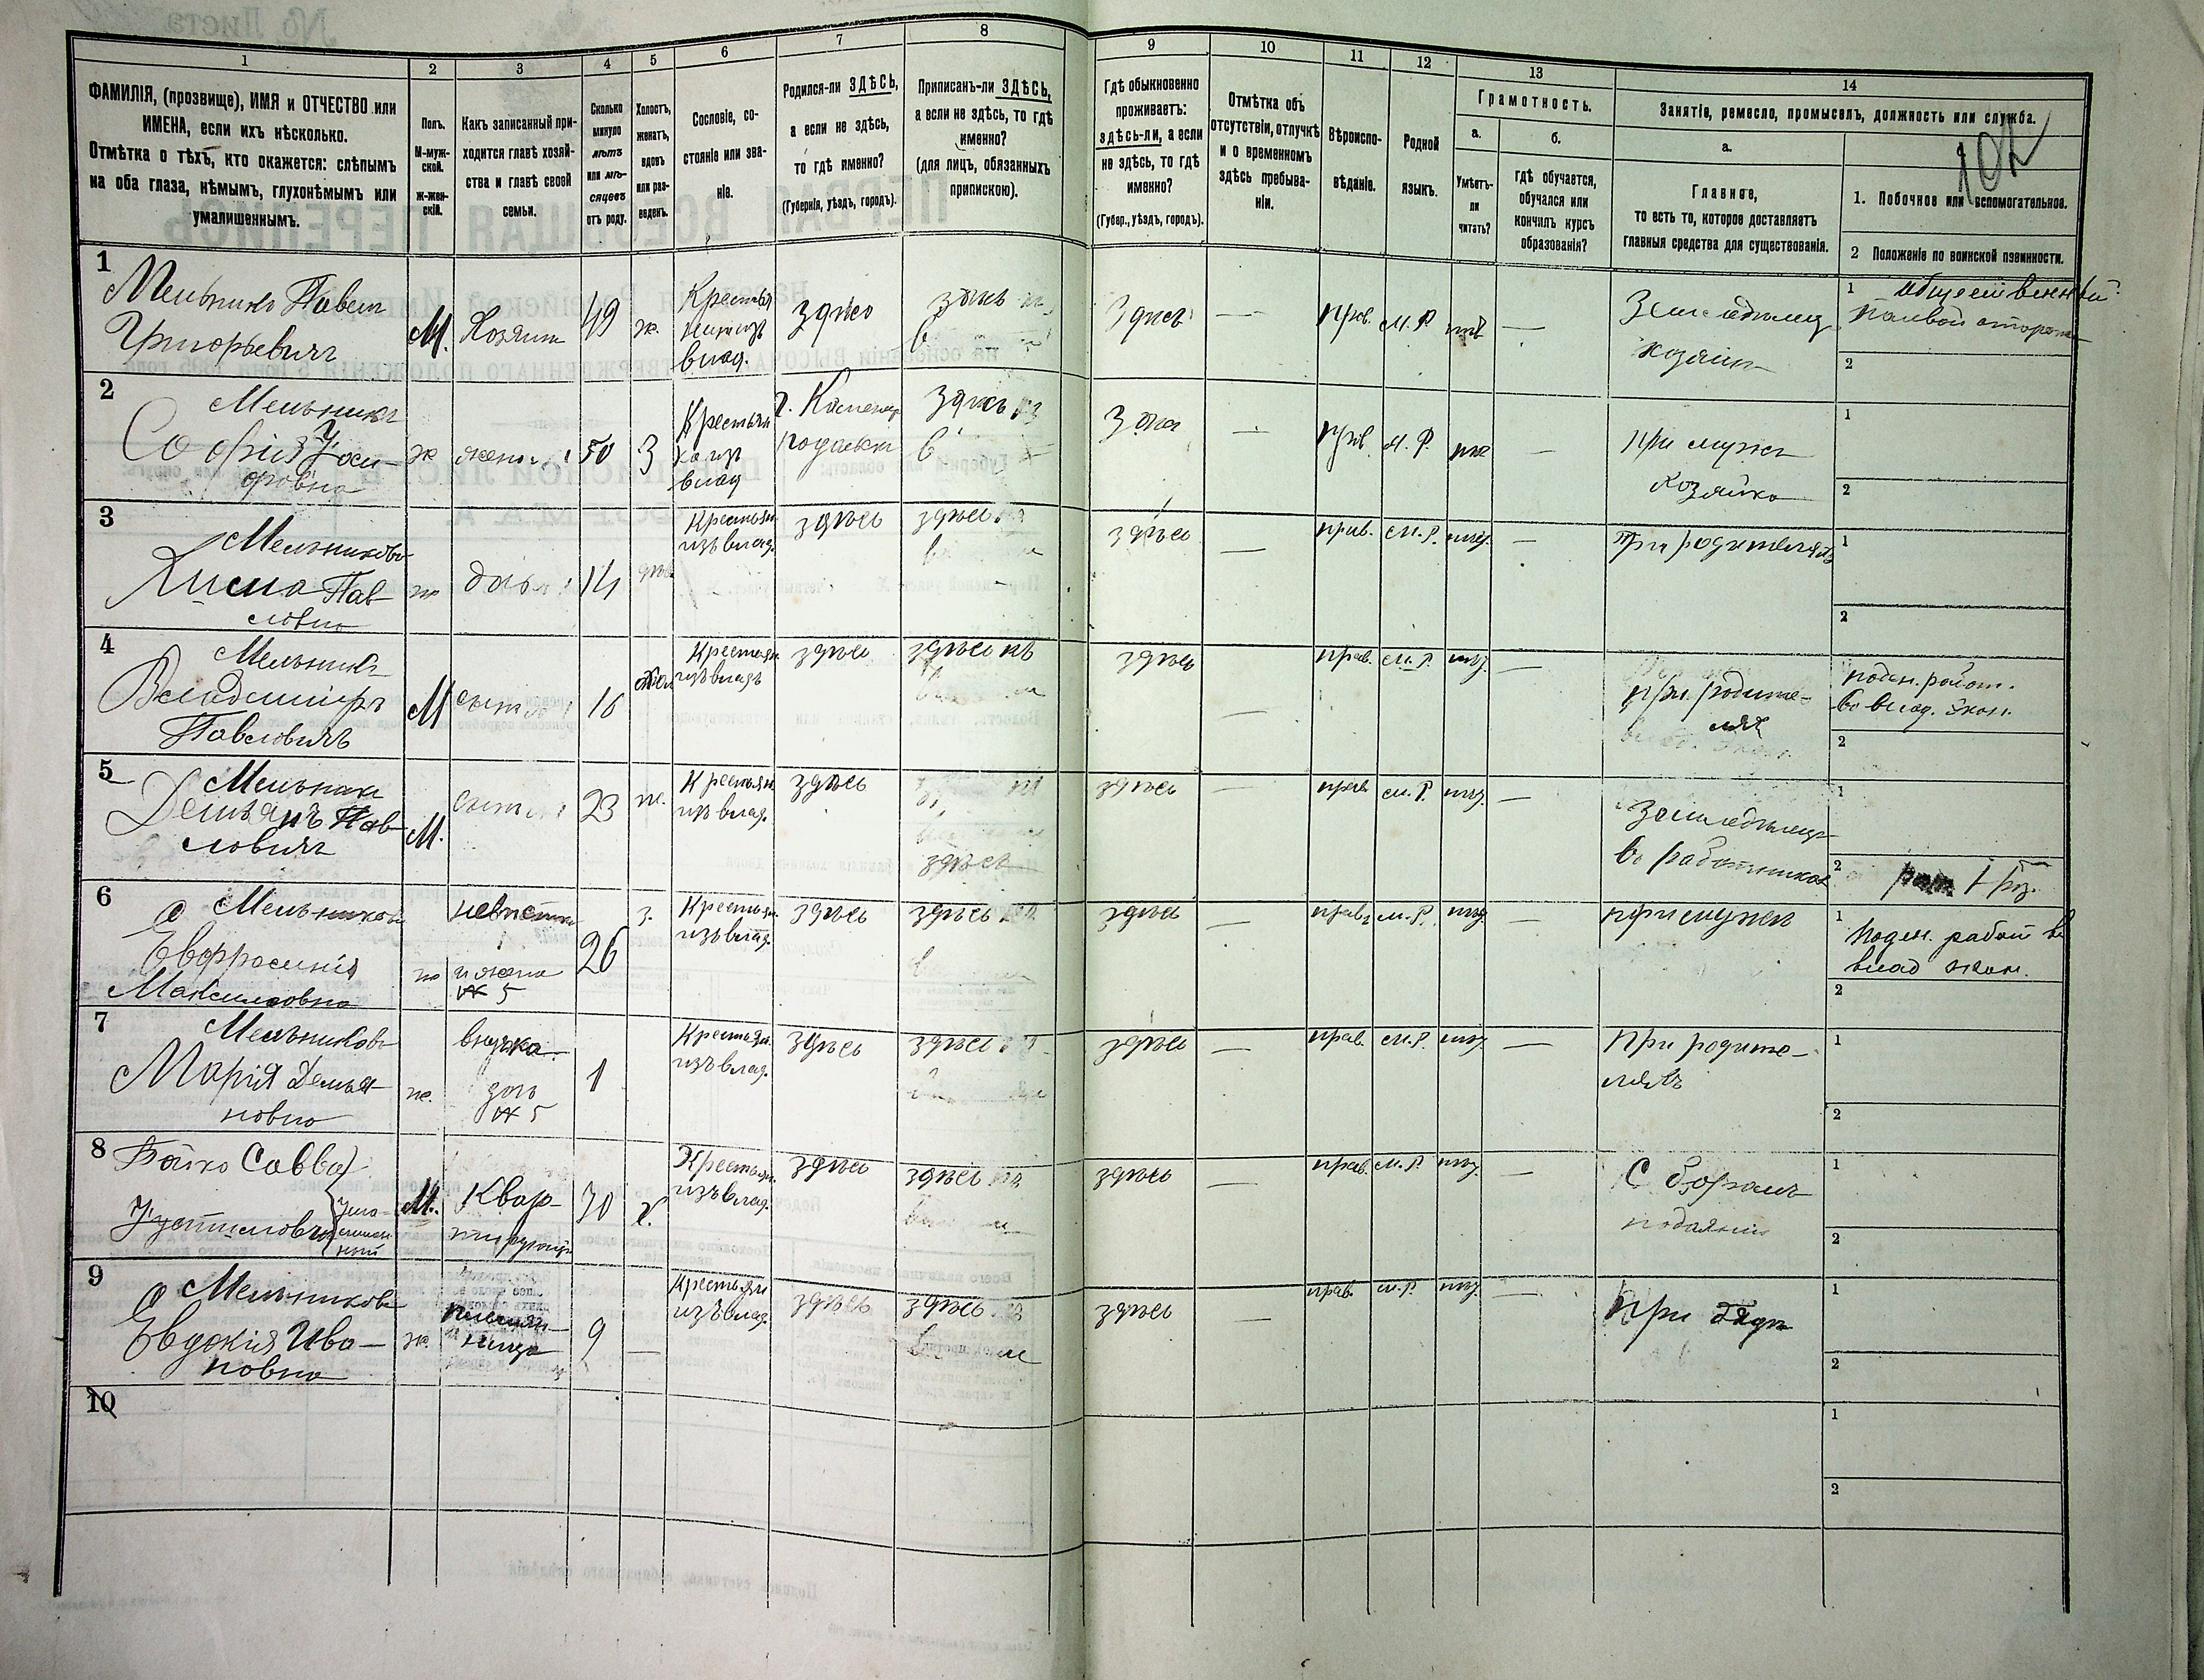 1 2 3 4 5 6 7 8 9 10 11 12 13 14
ФАМИЛІЯ, (прозвище), ИМЯ и ОТЧЕСТВО или
ИМЕНА, если ихъ нѣсколько.
Отмѣтка о тѣхъ, кто окажется: слѣпымъ
на оба глаза, нѣмымъ, глухонѣмымъ или
умалишеннымъ.
Полъ.
М-муж-
ской.
ж-жен-
скій.
Какъ записанный при-
ходится главѣ хозяй-
ства и главѣ своей
семьи.
Сколько
минуло
лѣтъ
или мѣ-
сяцевъ
отъ роду.
Холостъ,
женатъ,
вдовъ
или раз-
веденъ.
Сословіе, со-
стояніе или зва-
ніе.
Родился-ли ЗДѢСЬ,
а если не здѣсь,
то гдѣ именно?
(Губернія, уѣздъ, городъ).
Приписанъ-ли ЗДѢСЬ,
а если не здѣсь, то гдѣ
именно?
(для лицъ, обязанныхъ
припискою).
Гдѣ обыкновенно
проживаетъ:
здѣсь-ли, а если
не здѣсь, то гдѣ
именно?
(Губер., уѣздъ, городъ).
Отмѣтка объ
отсутствіи, отлучкѣ
и о временномъ
здѣсь пребыва-
ніи.
Вѣроиспо-
вѣданіе.
Родной
языкъ.
Грамотность.
а.
Умѣетъ-
ли
читать?
б.
гдѣ обучается,
обучался или
кончилъ курсъ
образованія?
Занятіе, ремесло, промыселъ, должность или служба.
а.
Главное,
то есть то, которое доставляетъ
главныя средства для существованія.
102
1. Побочное или вспомогательное.
2 Положеніе по воинской повинности.
1
Мельникъ Павелъ
Григорьевичъ
М. Хозяинъ 49 ж.
Крестья
нинъ изъ
влад.
здѣсь
здѣсь
Здѣсь — прав. М. Р. нѣт —
Земледѣлецъ
хозяинъ
1 общественный
полевой сторожъ
2
2
Мельникъ
Софія Іоси-
фовна
ж жена 50 З
Крестьян
ка изъ
влад
г. Каменец
подольск
Здѣсь
— прав. М. Р. —
при мужѣ
хозяйка
1
2
3
Мельникова
Павловна
дочь 14 дѣв.
Крестьян.
изъ влад.
здѣсь
здѣсь
здѣсь — прав. М. Р. —
При родителяхъ
1
2
4
Мельникъ
Владиміръ
Павловичъ
М сынъ 16
Крестьян.
изъ влад.
здѣсь
здѣсь
здѣсь — прав. М. Р. —
при родите-
ляхъ
поден. работ.
во влад. экон.
2
5
Мельникъ
Демьянъ Пав-
ловичъ
М. сынъ 23 ж.
Крестьян.
изъ влад.
здѣсь
здѣсь
здѣсь — прав. М. Р. —
Земледѣлецъ
въ работникахъ
1
2 рат. 1 раз.
6
Мельникова
Евфросинія
Максимовна
ж
невѣстка
и жена
№ 5
26 з.
Крестьян.
изъ влад.
здѣсь
здѣсь
здѣсь — прав. М. Р. —
при мужѣ
1 Поден. работ. во
влад экон.
2
7
Мельникова
Марія Демья-
новна
ж.
внучка
дочь
№ 5
1
Крестьян.
изъ влад.
здѣсь
здѣсь
здѣсь — прав. М. Р. —
При родите-
ляхъ
1
2
8
Бойко Савва
Устиновъ
умалишенный
М. Квар-
тирующій
70 х.
Крестьян.
изъ влад.
здѣсь
здѣсь
здѣсь — прав. М. Р. —
Сборомъ
подаяній
1
2
9
Мельникова
Евдокія Ива-
новна
ж.
племян-
ница
9 —
Крестьян.
изъ влад.
здѣсь
здѣсь
здѣсь — прав. М. Р. —
При дядѣ
1
2
10
1
2